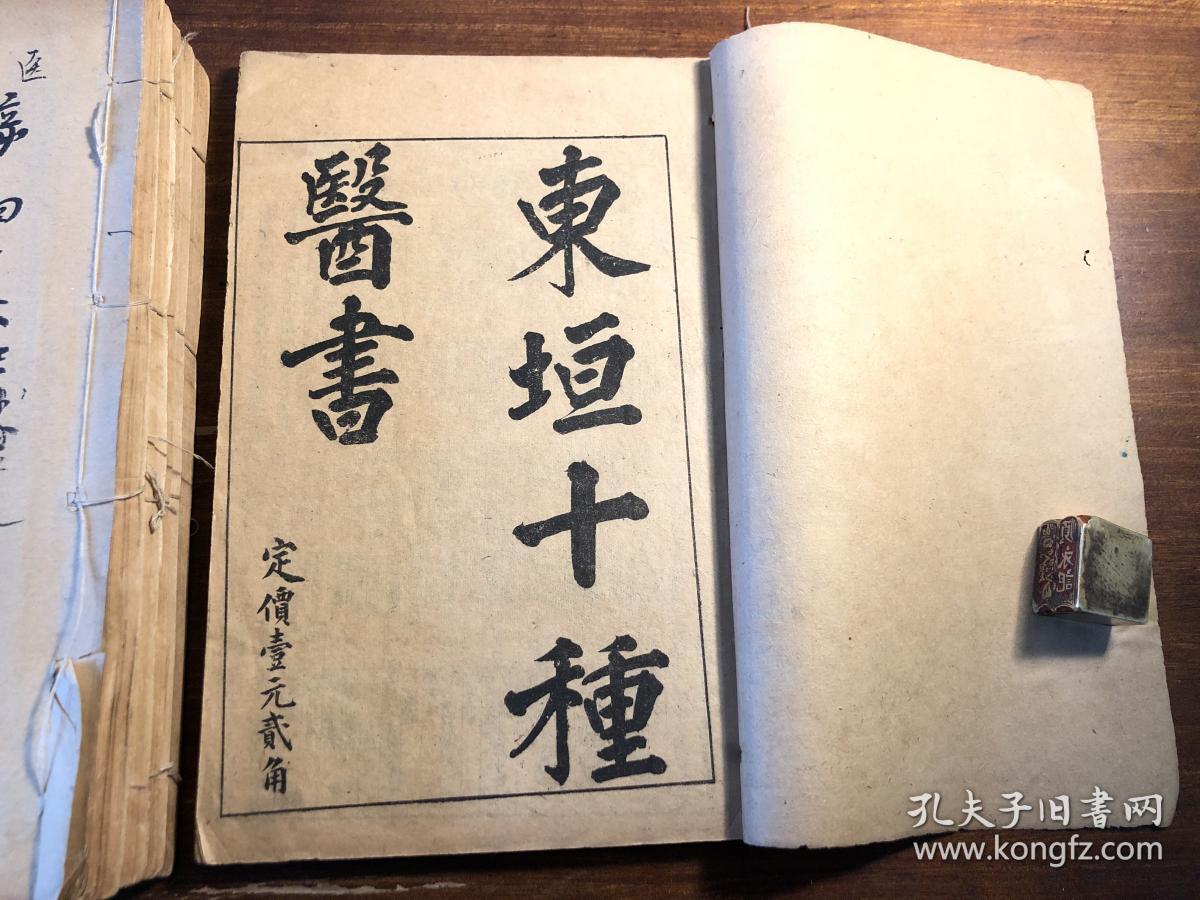 東垣十種
醫書
定價壹元貳角
医
孔夫子旧書网
www.kongfz.com